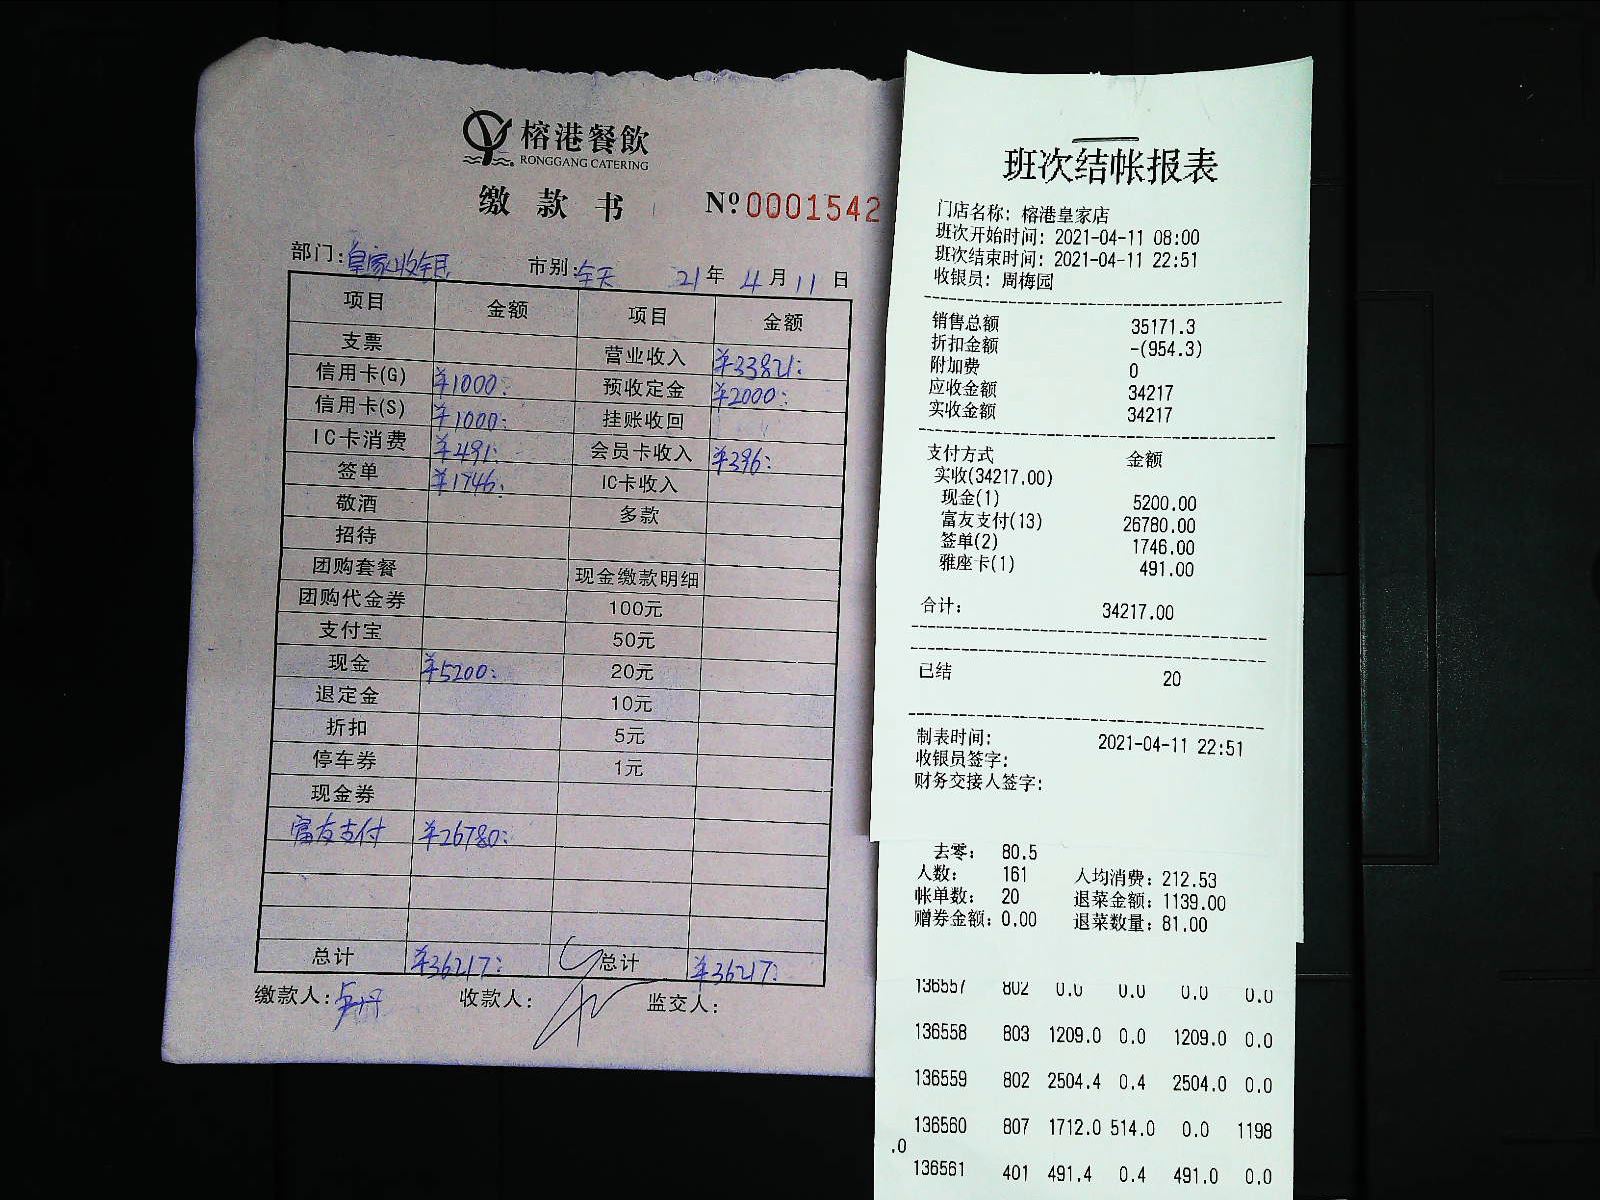 榕港餐飲
RONGGANG CATERING
缴款书 Nº0001542
部门:皇家收银 市别:全天 21年4月11日
项目 金额 项目 金额
支票 营业收入 ¥33821:
信用卡(G) ¥1000: 预收定金 ¥2000:
信用卡(S) ¥1000: 挂账收回
IC卡消费 ¥491: 会员卡收入 ¥396:
签单 ¥1746: IC卡收入
敬酒 多款
招待
团购套餐 现金缴款明细
团购代金券 100元
支付宝 50元
现金 ¥5200: 20元
退定金 10元
折扣 5元
停车券 1元
现金券
富友支付 ¥26780:
总计 ¥36217: 总计 ¥36217:
缴款人: 收款人: 监交人:
班次结帐报表
门店名称: 榕港皇家店
班次开始时间: 2021-04-11 08:00
班次结束时间: 2021-04-11 22:51
收银员: 周梅园
销售总额 35171.3
折扣金额 -(954.3)
附加费 0
应收金额 34217
实收金额 34217
支付方式 金额
实收(34217.00)
现金(1) 5200.00
富友支付(13) 26780.00
签单(2) 1746.00
雅座卡(1) 491.00
合计: 34217.00
已结 20
制表时间: 2021-04-11 22:51
收银员签字:
财务交接人签字:
去零: 80.5
人数: 161 人均消费: 212.53
帐单数: 20 退菜金额: 1139.00
赠券金额: 0.00 退菜数量: 81.00
136557 802 0.0 0.0 0.0 0.0
136558 803 1209.0 0.0 1209.0 0.0
136559 802 2504.4 0.4 2504.0 0.0
136560 807 1712.0 514.0 0.0 1198
.0
136561 401 491.4 0.4 491.0 0.0